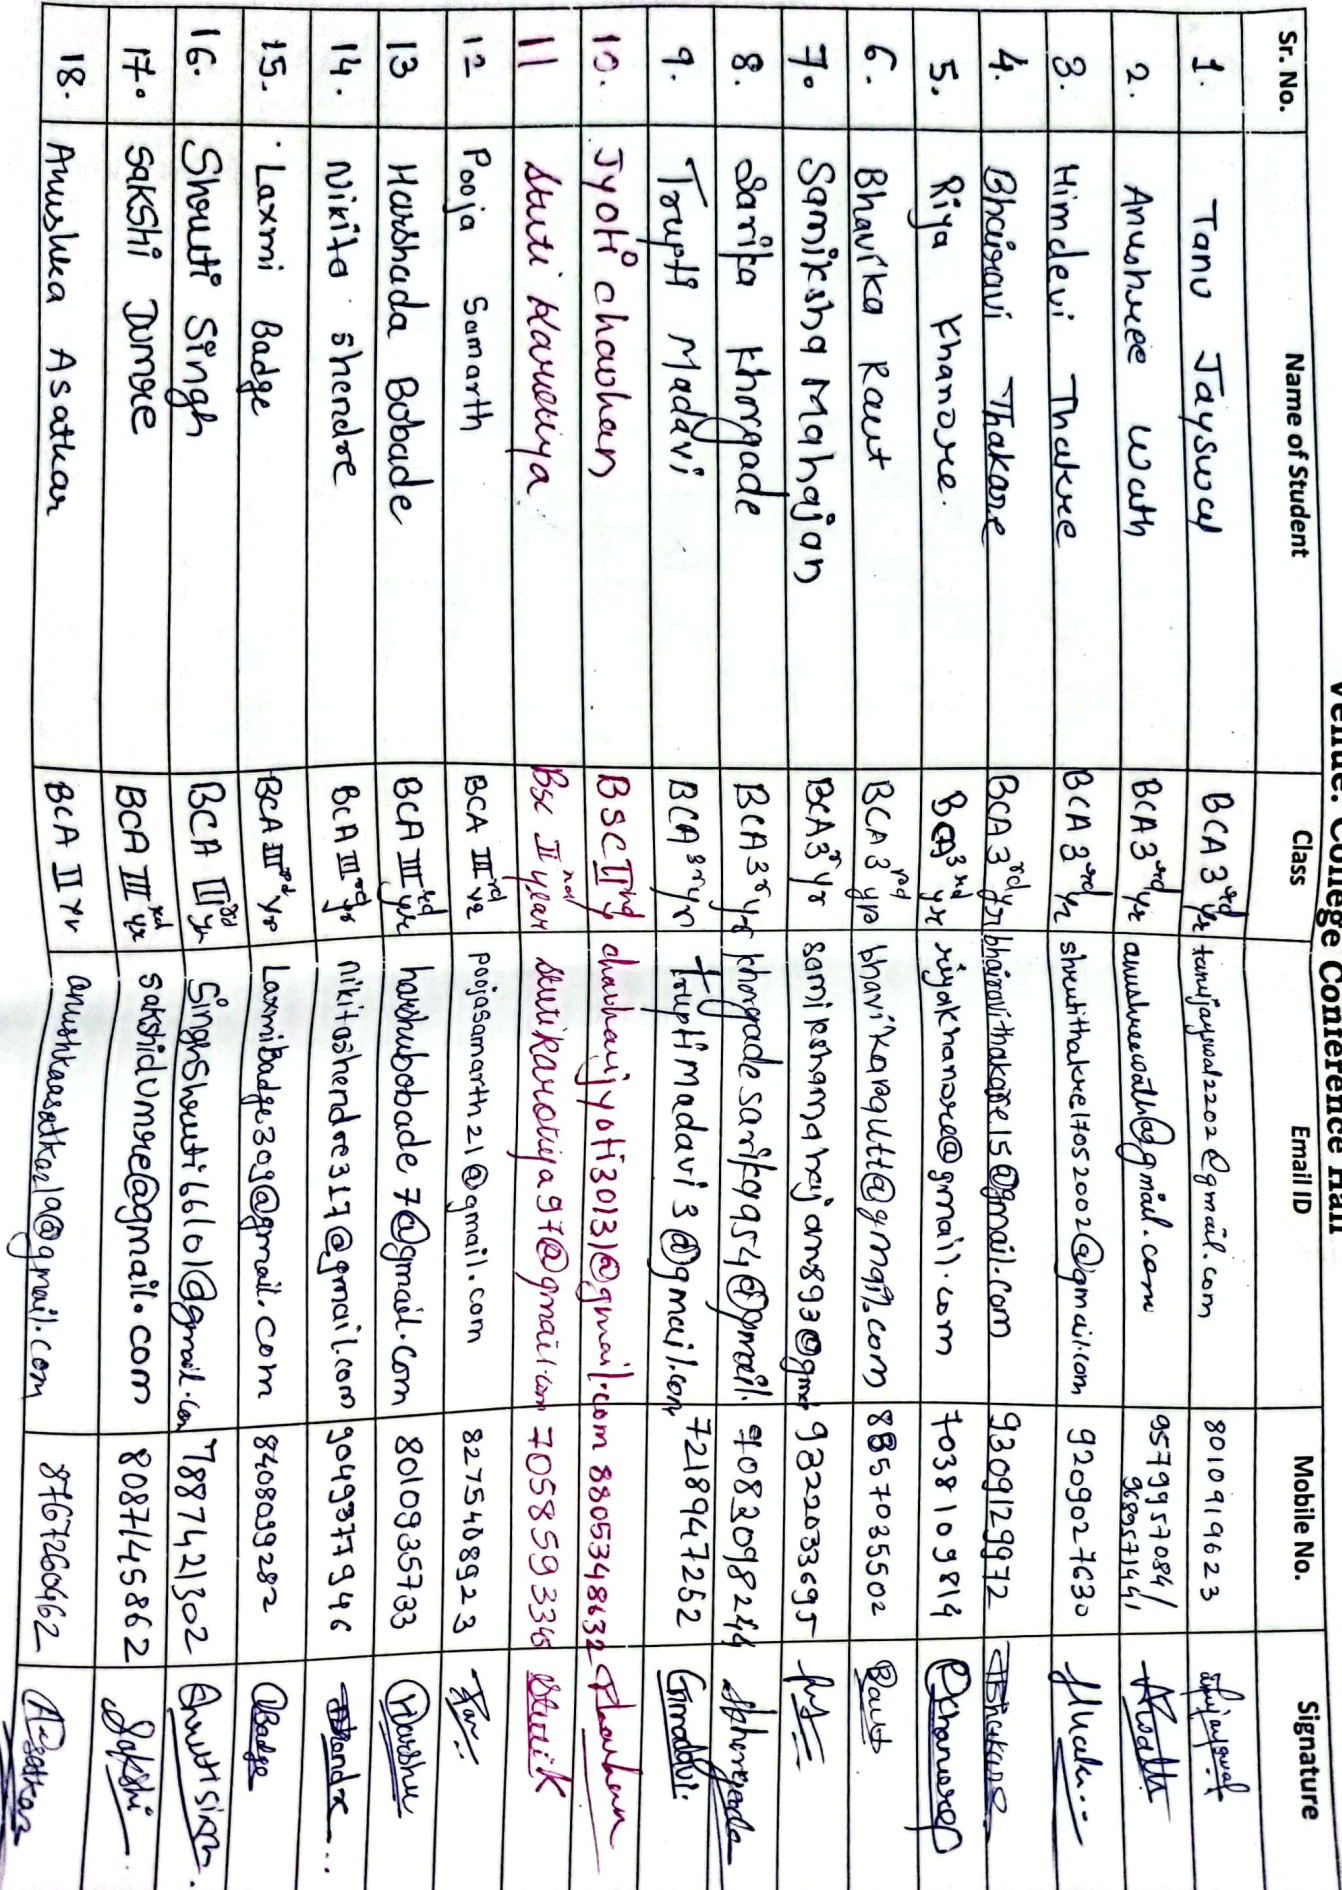 Venue: College Conference Hall
Sr. No. Name of Student Class Email ID Mobile No. Signature
1. Tanu Jayswal BCA 3rd yr tanujayswal2202@gmail.com 8010919623
2. Anushree Wath BCA 3rd yr anushreewath@gmail.com 9579957084/ 9689571441
3. Himdevi Thakre BCA 3rd yr shruithakre17052002@gmail.com 9209027630
4. Bhairavi Thakare BCA 3rd yr bhairavithakare15@gmail.com 9309129972 Thakare
5. Riya Khanore BCA 3rd yr riyakhanore@gmail.com 7038109814 RKhanore
6. Bhavika Raut BCA 3rd yr bhavikarautt@gmail.com 8857035502 Raut
7. Samiksha Mahajan BCA 3r yr samikshamahajan893@gma 9322033695
8. Sarika Khorgade BCA 3r yr khorgadesarika954@gmail. 7083098244 Skhorgade
9. Trupti Madavi BCA 3r yr truptimadavi3@gmail.com 7218947252
10. Jyoti chavhan BSC IInd y chavhanjyoti30131@gmail.com 8805348632 Chavhan
11 Shuti Karuetiya Bsc IInd year 7058593346 Shuti K
12 Pooja Samarth BCA IIIrd yr poojasamarth21@gmail.com 8275408923
13 Harshada Bobade BCA IIIrd yr harshubobade7@gmail.com 8010935733 Harshu
14. Nikita Shendre BCA IIIrd yr nikitashendre317@gmail.com 9049377946
15. Laxmi Badge BCA IIIrd yr Laxmibadge309@gmail.com 8408099282 LBadge
16. Shruti Singh BCA IIIrd yr SinghShruti66101@gmail.com 7887421302 Shruti Singh
17. Sakshi Dumre BCA IIIrd yr sakshidumre@gmail.com 8087145862 Sakshi
18. Anushka Asatkar BCA II yr. anushkaasatkar19@gmail.com 8767260462 Asatkar